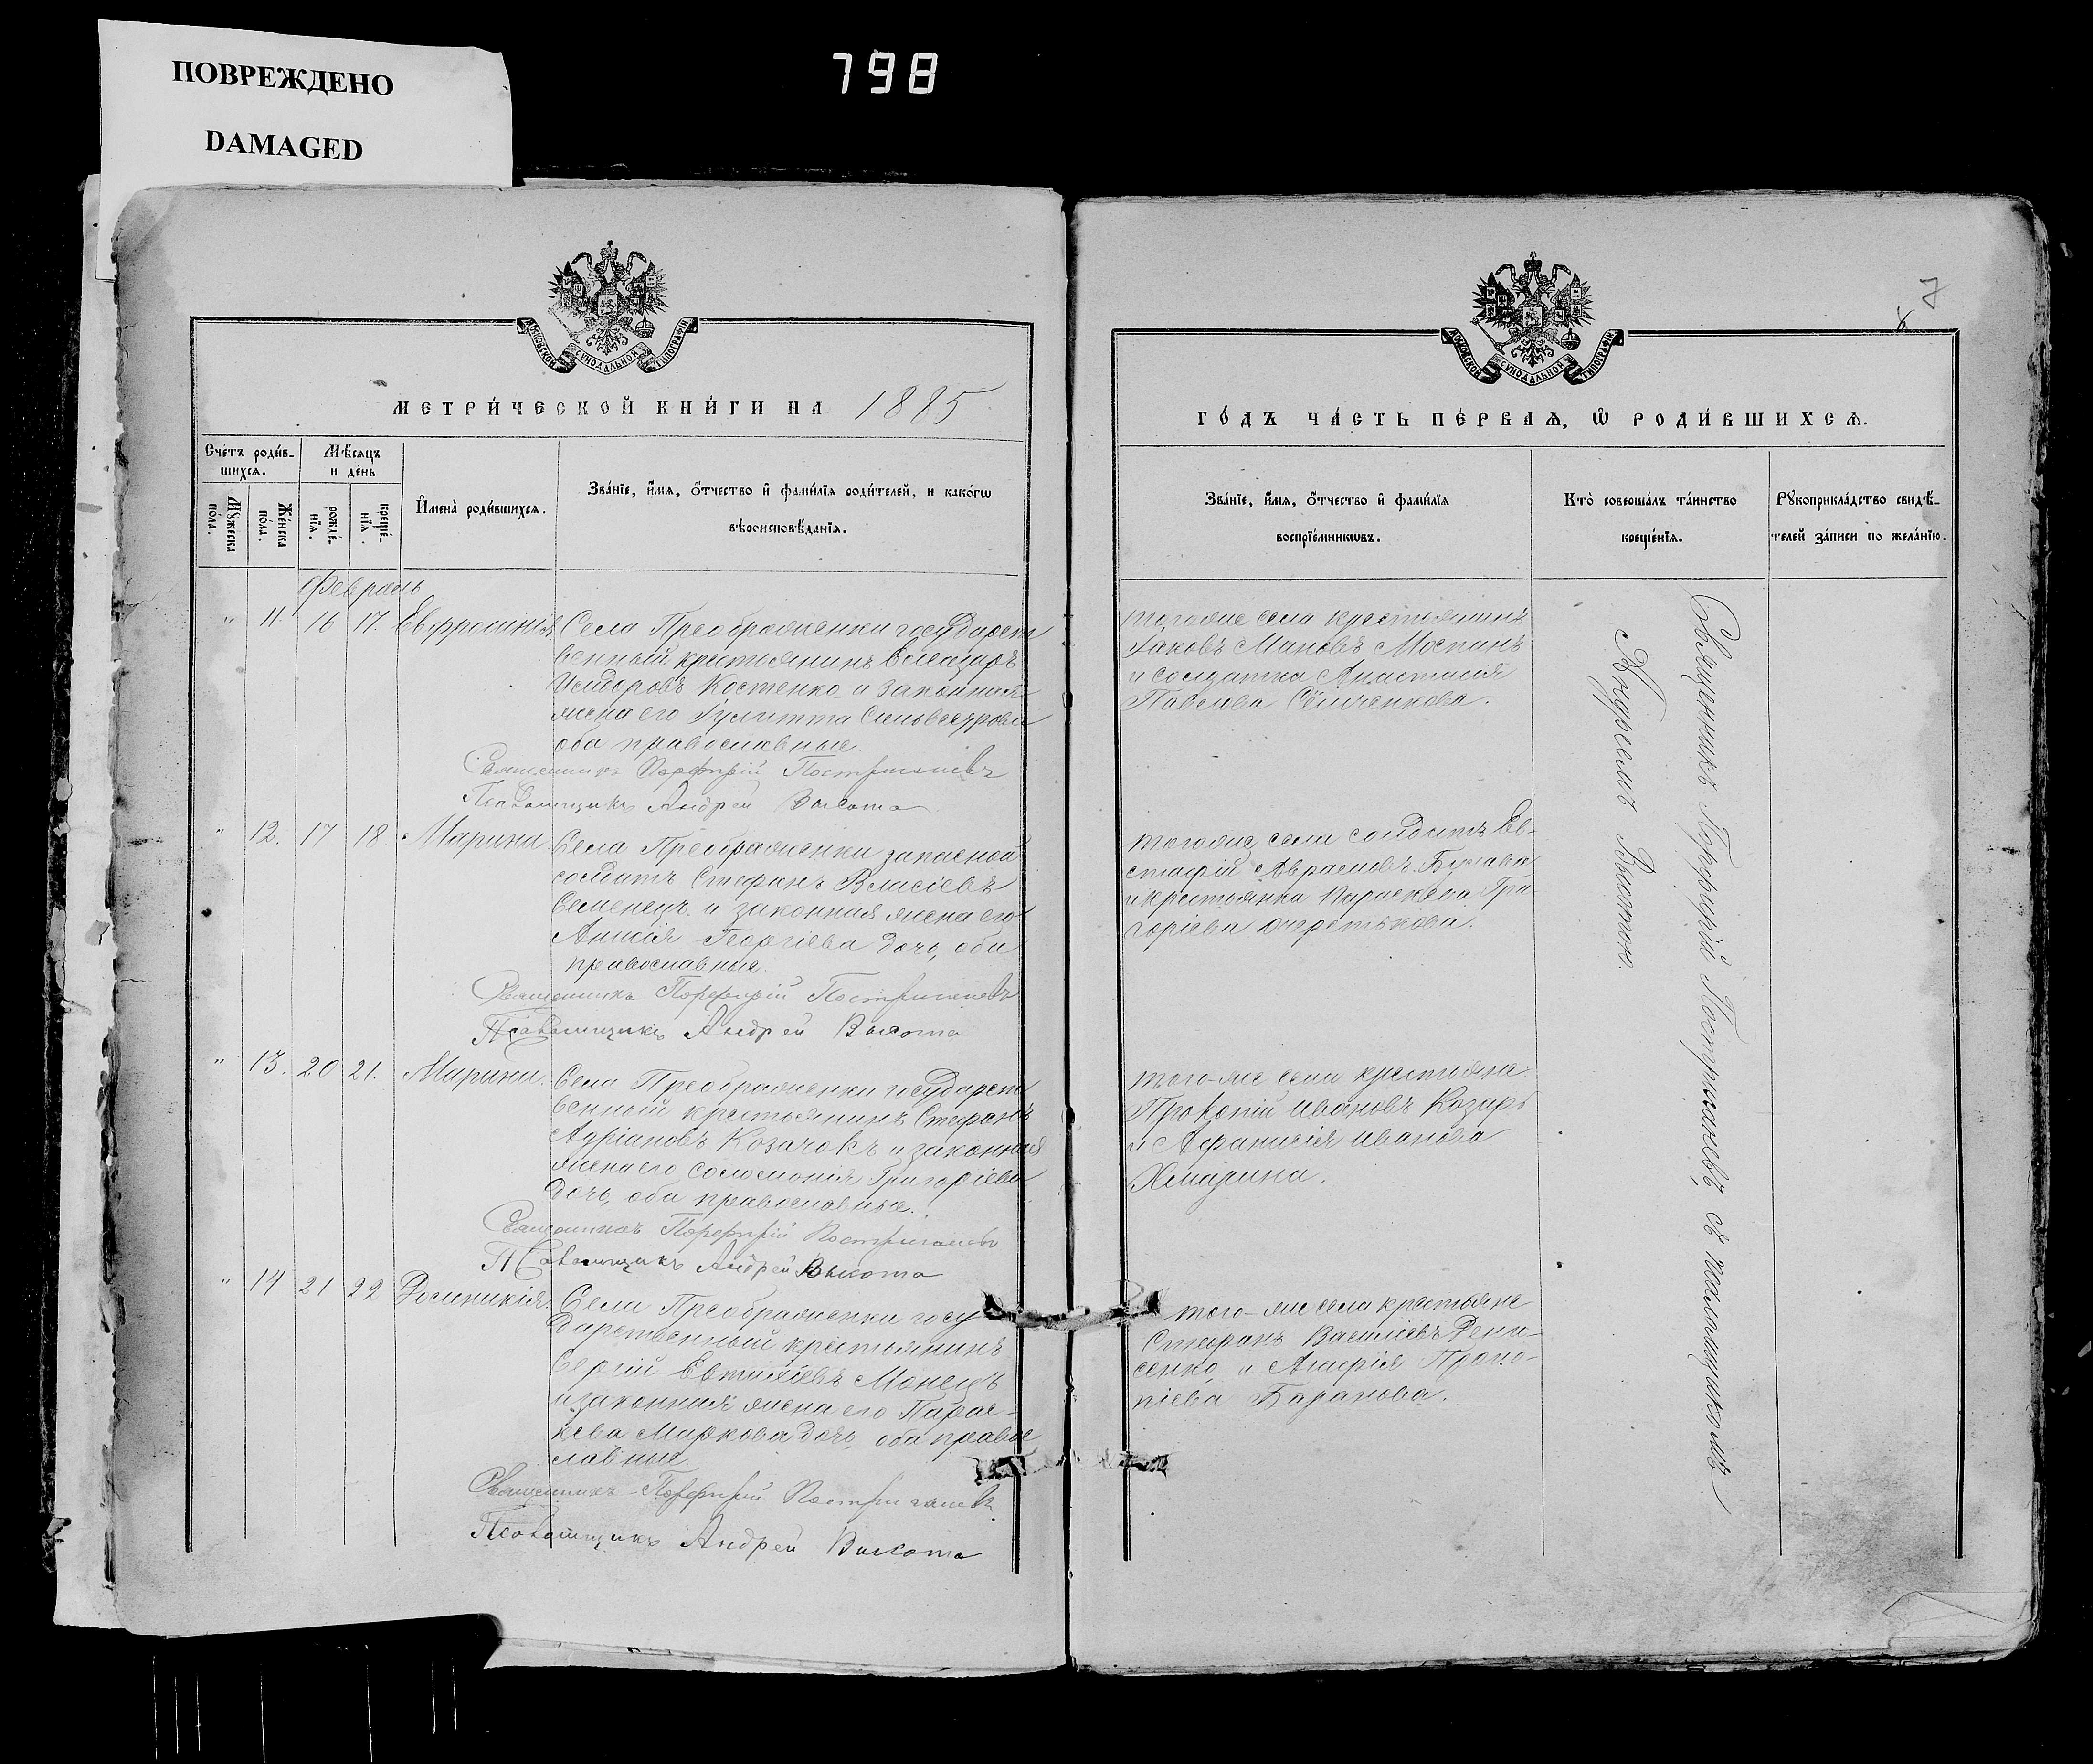 ПОВРЕЖДЕНО
DAMAGED
798
МОСКОВСКОЙ СѴНОДАЛЬНОЙ ТИПОГРАФІИ
МЕТРИ́ЧЕСКОЙ КНИ́ГИ НА 1885
Сче́тъ роди́в-
шихся.
Мѣ́сяцъ
и де́нь
Мꙋ́жеска
по́ла.
Же́нска
по́ла.
рожде́-
нїѧ.
креще́-
нїѧ.
И҆мена̀ роди́вшихся.
Зва́нїе, и҆́мѧ, ѻ҆́тчество и҆ фами́лїѧ роди́телей, и како́гѡ
вѣроисповѣ́данїѧ.
Февраль
" 11. 16 17. Евфросинія
Села Преображенки государст
венный крестьянинъ Елеазаръ
Исидоровъ Костенко и законная
жена его Іулитта Сильвестрова
оба православные.
Священникъ Порфирій Постригачевъ
Псаломщикъ Андрей Высота
" 12. 17 18. Марина
Села Преображенки запасной
солдатъ Стефанъ Власіевъ
Семенецъ и законная жена его
Анисія Георгіева дочь, оба
православные
Священникъ Порфирій Постригачевъ
Псаломщикъ Андрей Высота
" 13. 20 21. Марина.
Села Преображенки государст
венный крестьянинъ Стефанъ
Адріановъ Козачокъ и законная
жена его Соломонія Григоріева
дочь, оба православные.
Священникъ Порфирій Постригачевъ
Псаломщикъ Андрей Высота
" 14 21 22
Села Преображенки госу
дарственный крестьянинъ
Сергій Евтихіевъ Монецъ
и законная жена его Парас-
кева Маркова дочь, оба правос
лавные.
Священникъ Порфирій Постригачевъ
Псаломщикъ Андрей Высота
7
8
МОСКОВСКОЙ СѴНОДАЛЬНОЙ ТИПОГРАФІИ
ГО́ДЪ ЧА́СТЬ ПЕ́РВАѦ, Ѡ҆ РОДИ́ВШИХСѦ.
Зва́нїе, и҆́мѧ, ѻ҆́тчество и҆ фами́лїѧ
воспрїе́мникѡвъ.
Кто̀ соверша́лъ та́инство
креще́нїѧ.
Рꙋкоприкла́дство свидѣ́-
телей за́писи по жела́нїю.
того же села крестьянинъ
Іаковъ Моспанъ
и солдатка Анастасія
Павлова
того же села солдатъ Ев-
стафій Аврамовъ Булава
и крестьянка Параскева Гри
горіева Очеретькова.
того-же села крестьяне
Прокопій Ивановъ Козарь
и Афанасія Иванова
Хмарина.
того-же села крестьяне
Стефанъ Василіевъ Дени-
сенко, и Агафія Проко-
піева Баранова.
Священникъ Порфирій Постригачевъ, съ псаломщикомъ
Андреемъ Высотою.